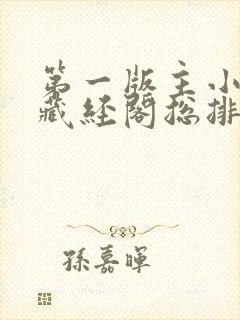 第一版主小
藏经阁总排
孫嘉暉